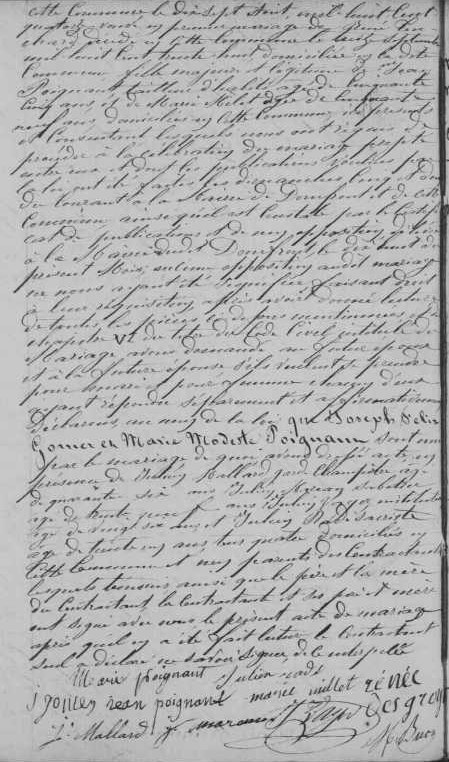 cette Commune le dix sept Août, mil huit Cent
quatorze
en cette Commune le Septembre
mil huit Cent trente huit, domiciliée en la dite
Commune, fille majeure et légitime de Jean
Poignant tailleur d'habits, âgé de Cinquante
Cinq ans, et de Marie Millet âgée de Cinquante
neuf ans, domiciliés en cette Commune, ici présents
et Consentant lesquels nous ont requis de
procéder à la Célébration du mariage projeté
entre eux et dont les publications voulues par
la loi ont été faites les dimanches Cinq et douze
du Courant à la Mairie de Domfront et de cette
Commune ainsi qu'il est Constaté par le Certifi
cat de publications et de non opposition délivré
à la Mairie dudit Domfront le dix huit du
présent Mois, aucune opposition audit mariage
ne nous ayant été signifiée, faisant droit
à leur réquisition, après avoir donné lecture
de toutes les pièces ci dessus mentionnées et du
chapitre VI du titre du Code Civil intitulé du
Mariage avons demandé au futur époux
et à la future épouse s'ils veulent se prendre
pour mari et pour femme chacun d'eux
ayant répondu séparément et affirmativement
Déclarons, au nom de la loi que Joseph Félix
Gomer et Marie Modeste Poignant sont unis
par le mariage de quoi avons dressé acte en
présence de Julien Mallard garde Champêtre âgé
de quarante six ans, Julien
âgé de trente ans
âgé de vingt six ans et Julien sacriste
âgé de trente cinq ans tous quatre domiciliés en
Cette Commune et non parents des Contractants
lesquels témoins ainsi que le père et la mère
du Contractant, la Contractante et ses père et mère
ont signé avec nous le présent acte de mariage
après qu'il en a été fait lecture, le Contractant
seul a déclaré ne savoir signer, de ce interpellé
Marie poignant Julien
jean poignant marie millet rénée
J. Mallard Desgres